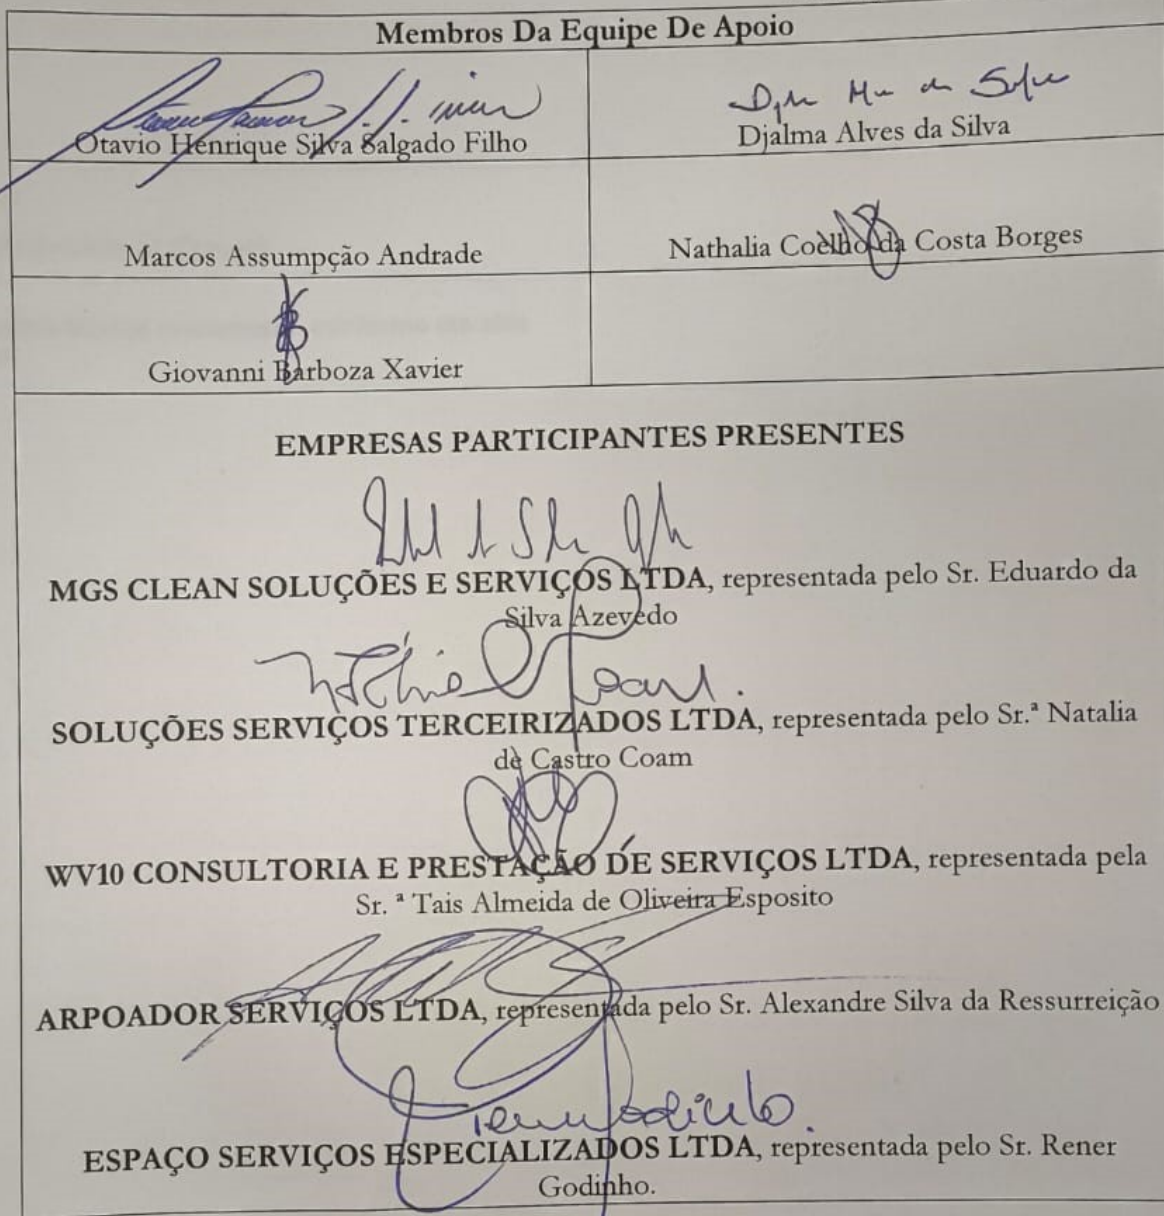 Membros Da Equipe De Apoio
Otavio Henrique Silva Salgado Filho
Djalma Alves da Silva
Marcos Assumpção Andrade
Nathalia Coelho da Costa Borges
Giovanni Barboza Xavier
EMPRESAS PARTICIPANTES PRESENTES
MGS CLEAN SOLUÇÕES E SERVIÇOS LTDA, representada pelo Sr. Eduardo da
Silva Azevedo
SOLUÇÕES SERVIÇOS TERCEIRIZADOS LTDA, representada pelo Sr.ª Natalia
de Castro Coam
WV10 CONSULTORIA E PRESTAÇÃO DE SERVIÇOS LTDA, representada pela
Sr. ª Tais Almeida de Oliveira Esposito
ARPOADOR SERVIÇOS LTDA, representada pelo Sr. Alexandre Silva da Ressurreição
ESPAÇO SERVIÇOS ESPECIALIZADOS LTDA, representada pelo Sr. Rener
Godinho.